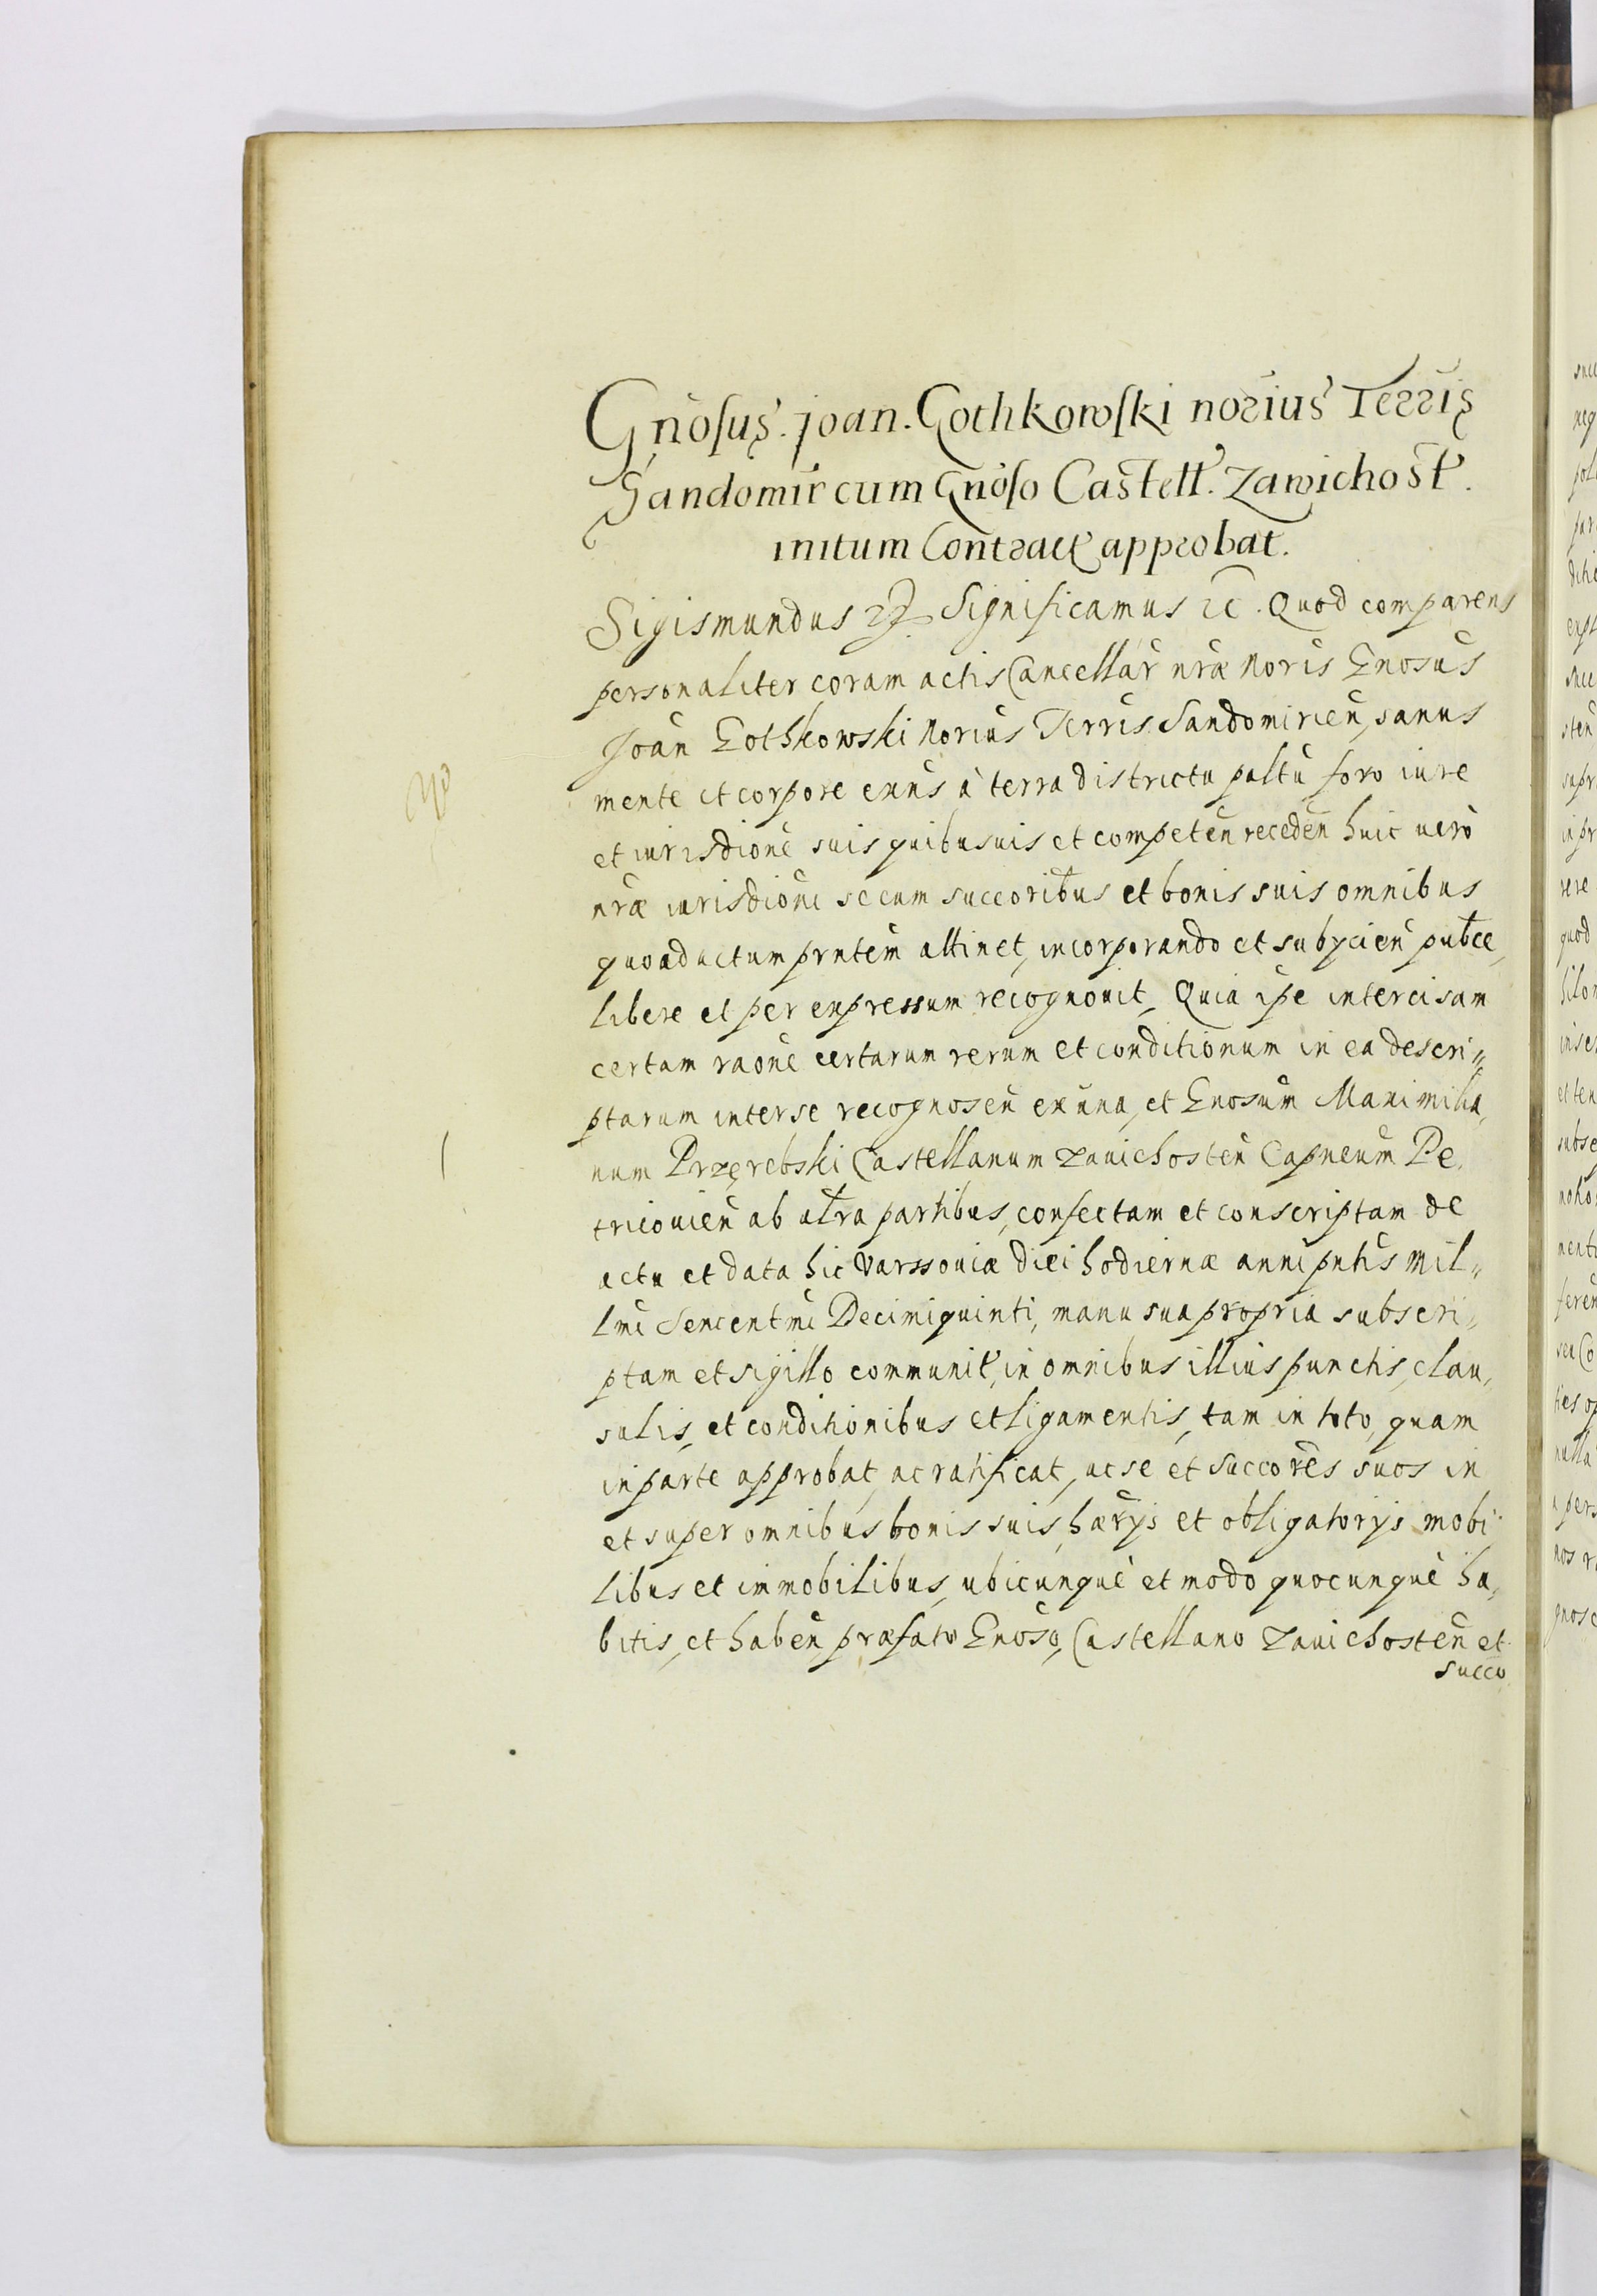 Gnosus. Joan. Gothkowski norius Terris
Sandomir cum Gnoso Castell. Zawichost.
initum Contract approbat.
Sigismundus Significamus etc. Quod comparens
personaliter coram actis Cancellar nræ Noris Gnosus
Joan Gothkowski Norius Terris Sandomirien, sanus
mente et corpore exns à terra districtu paltu foro iure
et iurisdione suis quibusuis et competen receden huic uero
nræ iurisdioni se cum succoribus et bonis suis omnibus
quoad actum prntem attinet, incorporando et subycien publce,
libere et per expressum recognouit, Quia ipe intercisam
certam raone certarum rerum et conditionum in ea descri„
ptarum inter se recognoscen ex una, et Gnosum Maximilia,
num Przerebski Castellanum Zauichosten Capneum Pe,
tricouien ab altra partibus, confectam et conscriptam de
actu et data hic Varssouiæ diei hodiernæ anni pntis Mil„
lmi Sexcentmi Decimiquinti, manu sua propria subscri„
ptam et sigillo communit, in omnibus illius punctis, clau,
sulis, et conditionibus et ligamentis, tam in toto, quam
in parte approbat, ac ratificat, ac se et succores suos in
et super omnibus bonis suis, hærys et obligatorys mobi
libus et immobilibus, ubicunque et modo quocunque ha,
bitis, et haben præfato Gnoso, Castellano Zauichosten et
succo